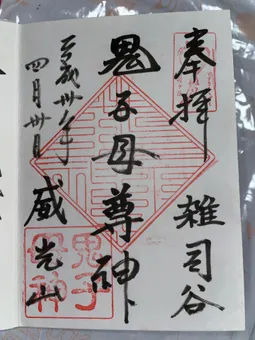 奉拝 雑司谷
鬼子母尊神
平成卅一年
四月卅日
威光山
鬼子
母神